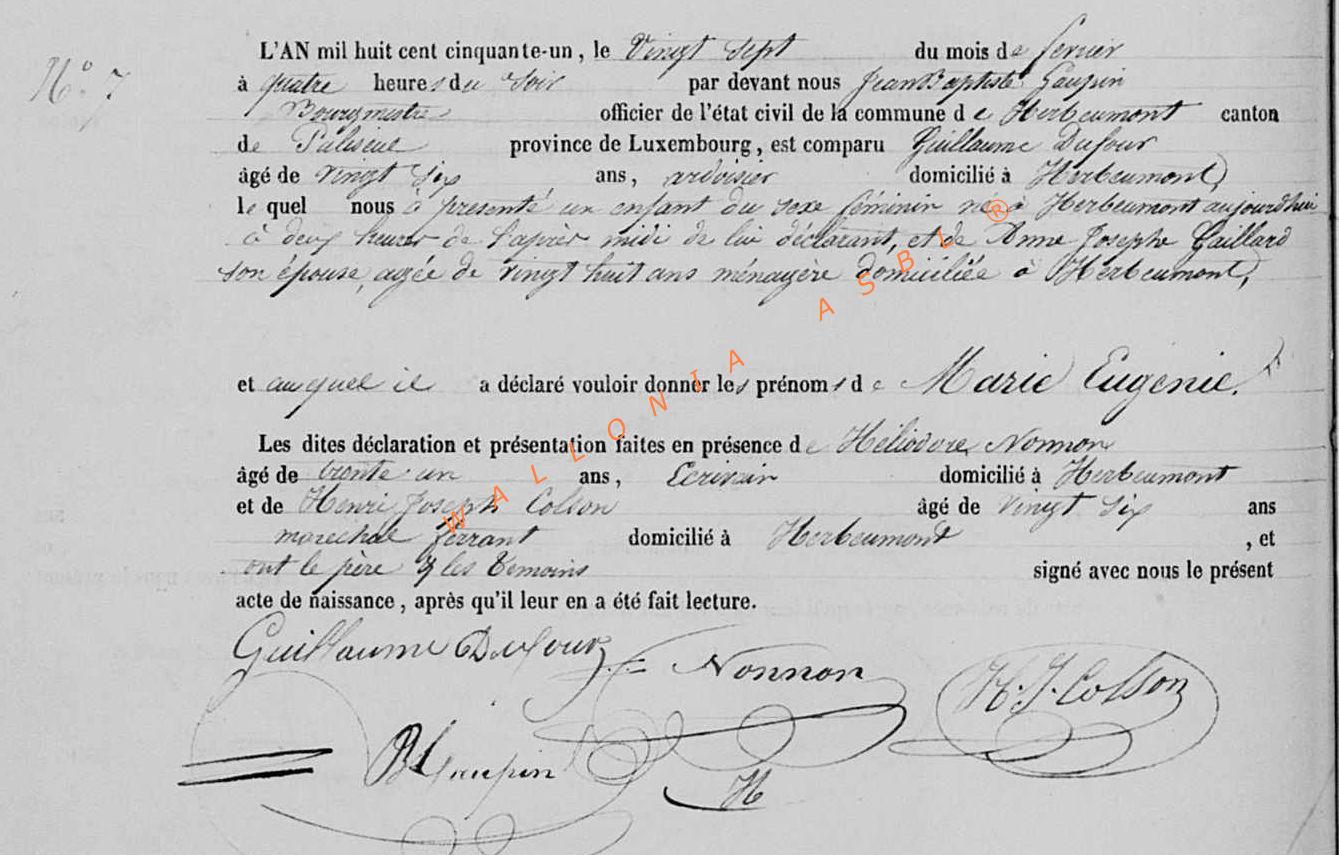 N.° 7
L'AN mil huit cent cinquante-un, le Vingt Sept du mois de fevrier
à quatre heures du Soir par devant nous Jean Baptiste Gaupin
Bourgmestre officier de l'état civil de la commune de Herbeumont canton
de Paliseul province de Luxembourg, est comparu Guillaume Dufour
âgé de vingt Six ans, ardoisier domicilié à Herbeumont,
le quel nous a présenté un enfant du sexe féminin né à Herbeumont aujourdhui
à deux heures de l'après midi de lui déclarant, et de Anne Josephe Gaillard
son épouse, agée de vingt huit ans ménagère domiciliée à Herbeumont,
et auquel il a déclaré vouloir donner les prénoms de Marie Eugénie.
Les dites déclaration et présentation faites en présence de Héliodore Nonnon
âgé de trente un ans, Ecrivain domicilié à Herbeumont
et de Henri Joseph Colson âgé de vingt Six ans
maréchal ferrant domicilié à Herbeumont, et
ont le père & les témoins signé avec nous le présent
acte de naissance, après qu'il leur en a été fait lecture.
Guillaume Dufour Nonnon H. J. Colson
H
WALLONIA ASBL ®